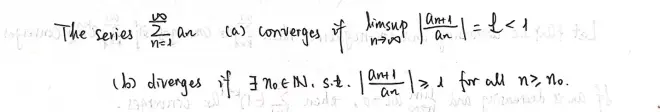 The series ∞∑n=1 an (a) converges if limsup n→∞ |an+1/an| = ℓ < 1
(b) diverges if ∃ n0 ∈ ℕ, s.t. |an+1/an| ⩾ 1 for all n ⩾ n0.